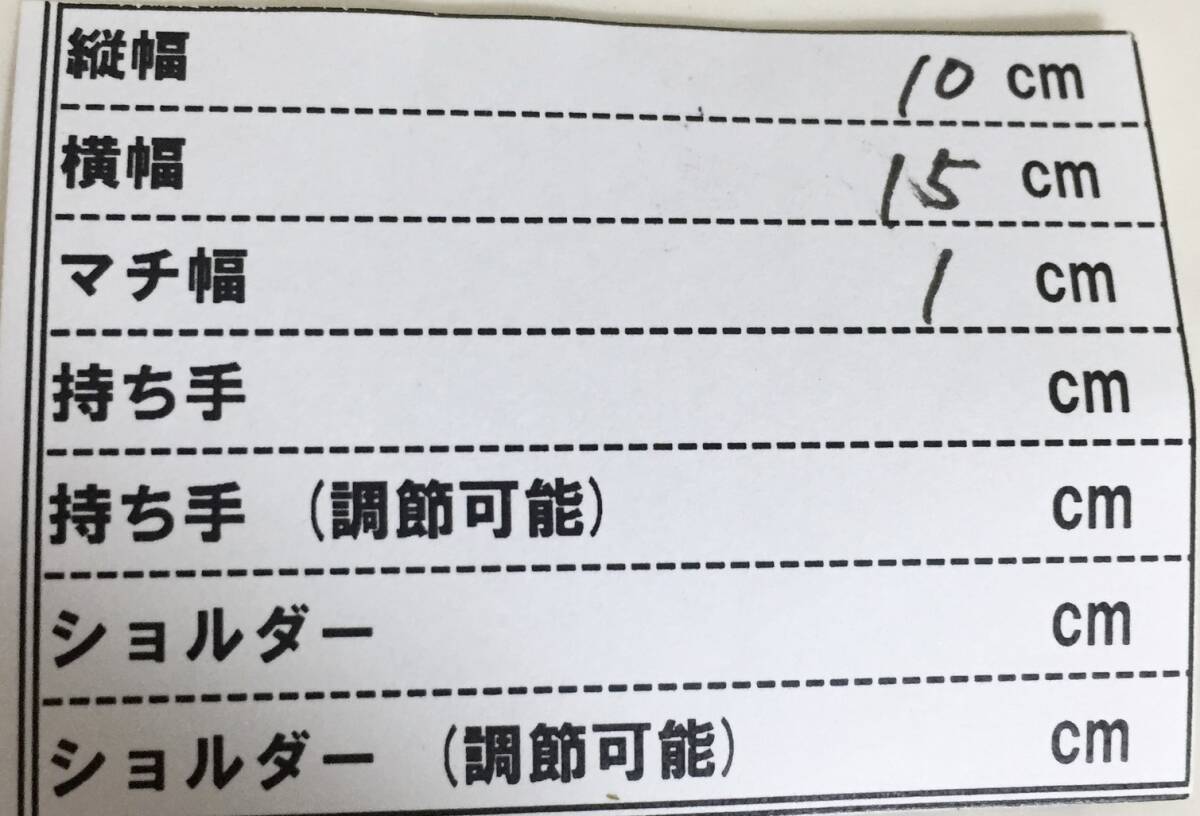 縦幅 10 cm
横幅 15 cm
マチ幅 1 cm
持ち手 cm
持ち手 (調節可能) cm
ショルダー cm
ショルダー (調節可能) cm